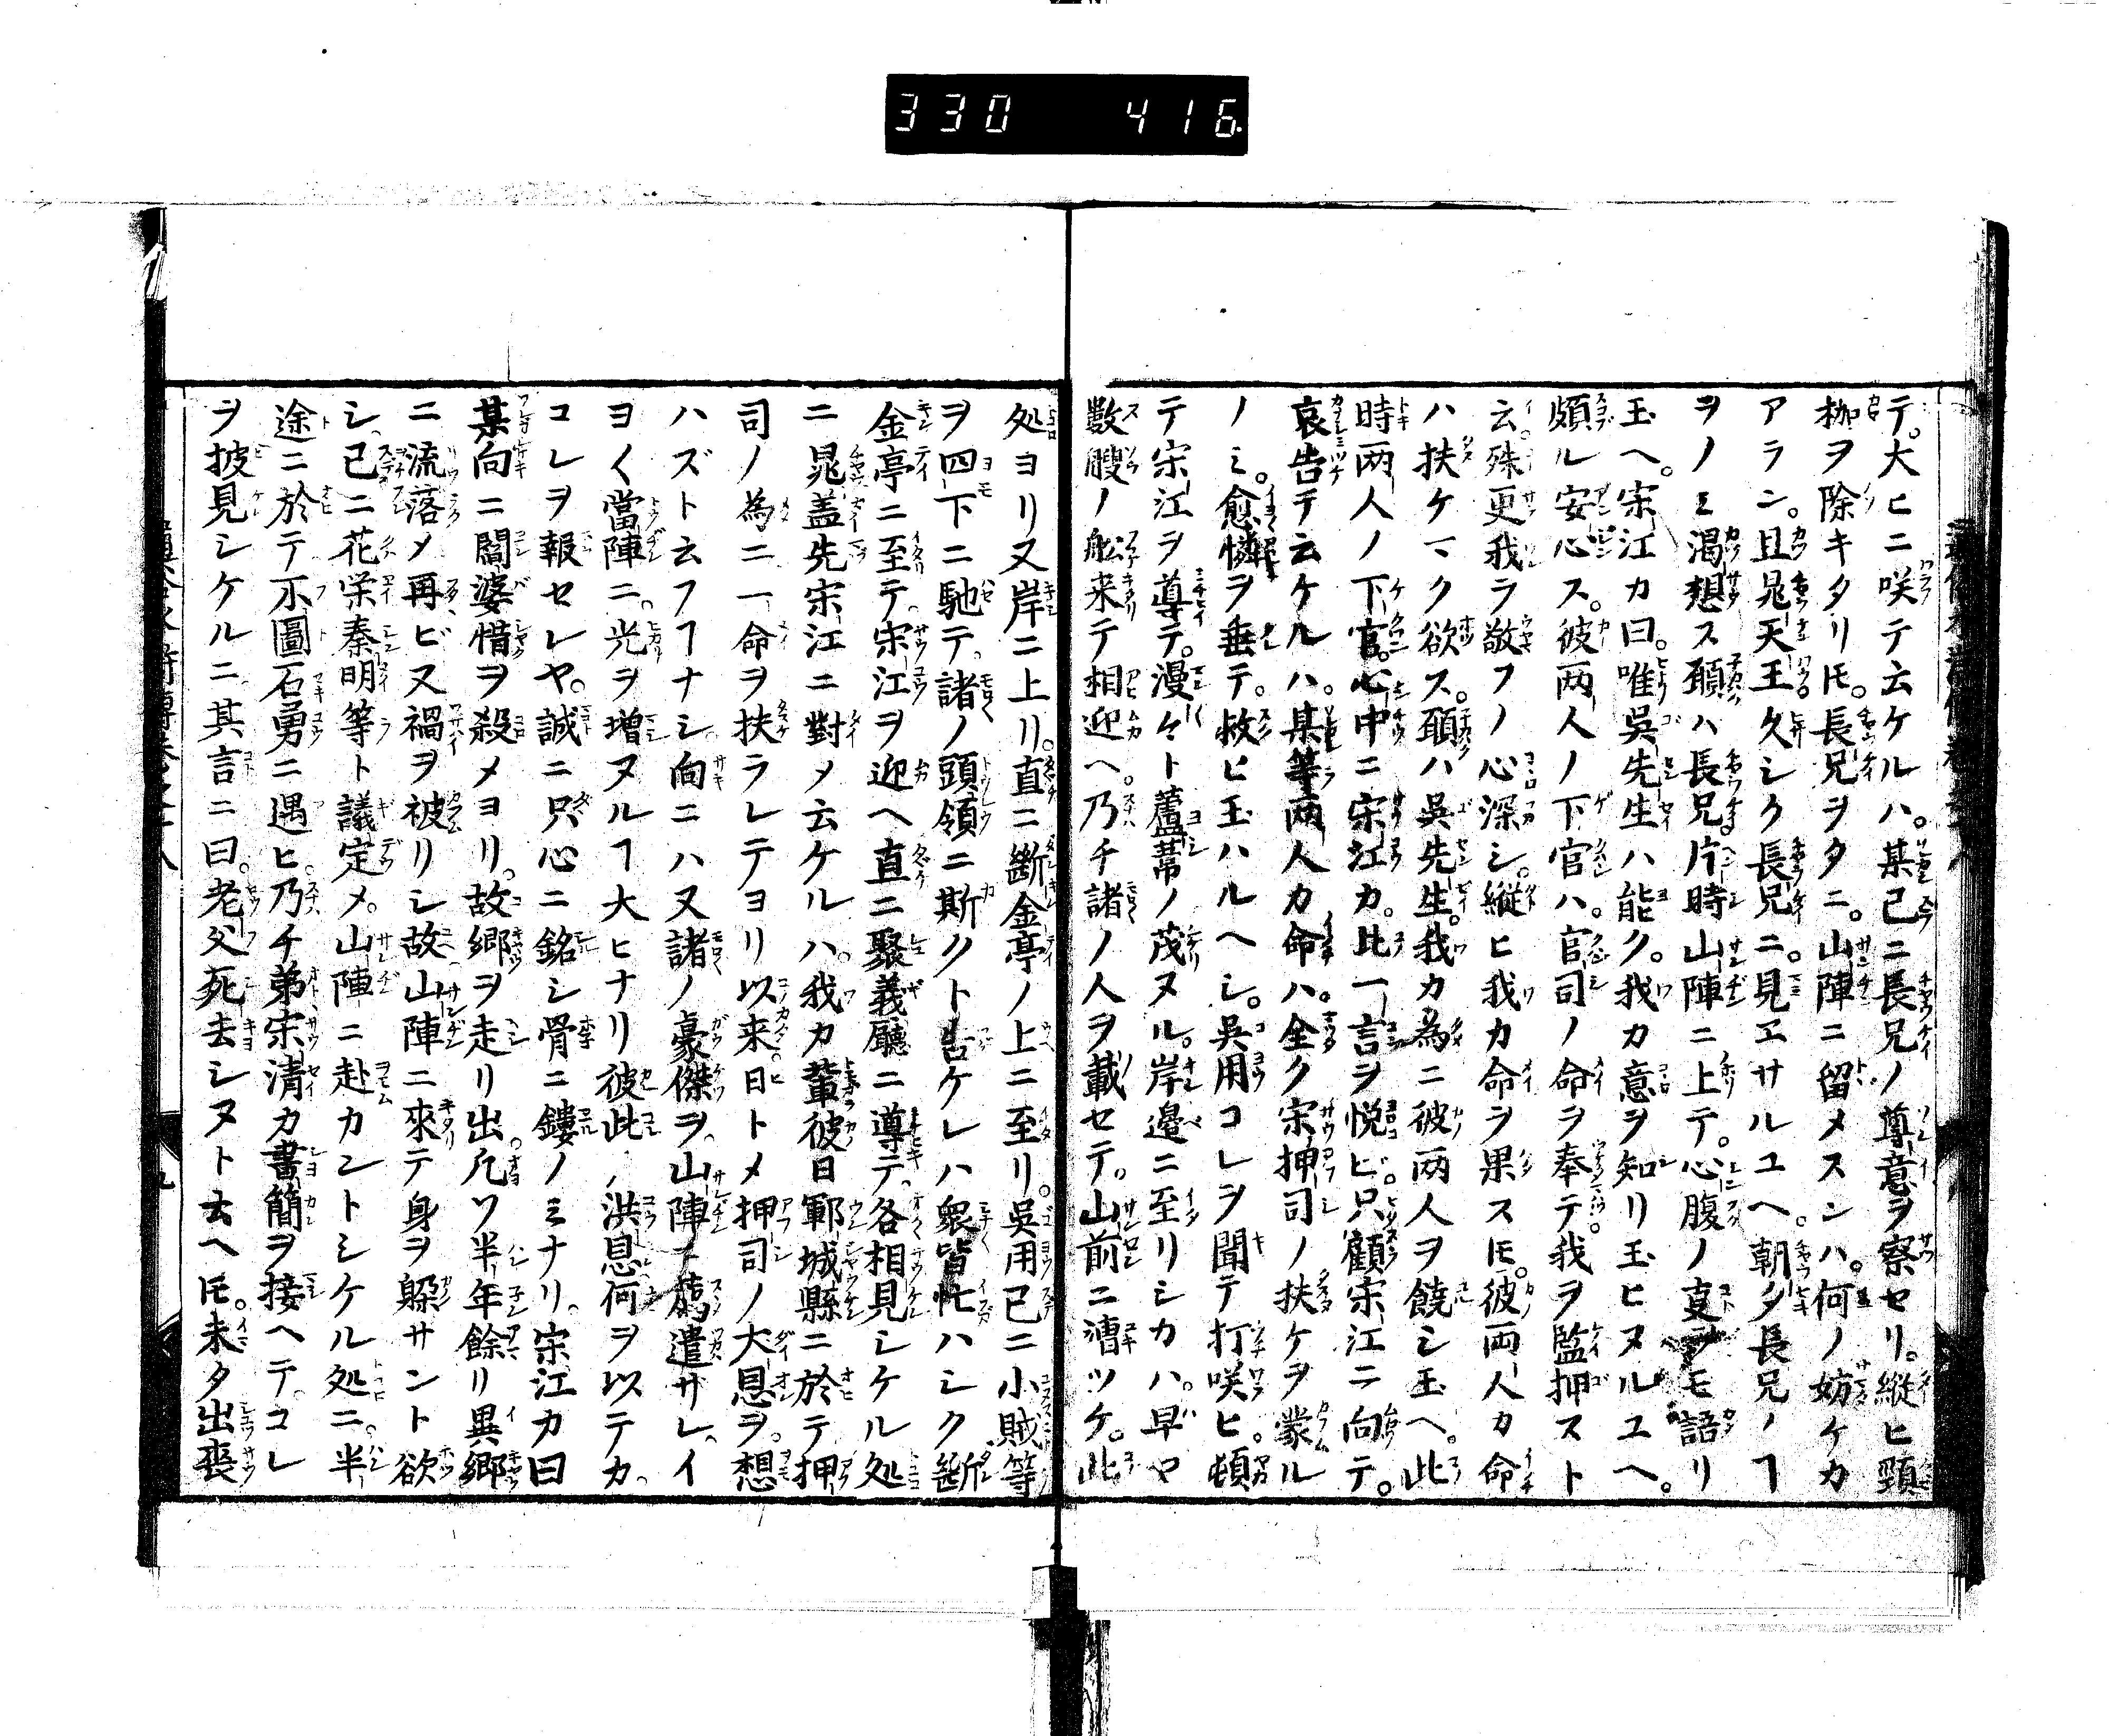 330 416
テ。大ヒニ咲テ云ケルハ。某已ニ長兄ノ尊意ヲ察セリ。縦ヒ頸
枷ヲ除キタリ𪜈。長兄ヲタニ。山陣ニ留メスンハ。何ノ妨ケカ
アラン。且晁天王久シク長兄ニ。見ヱサルユヘ。朝夕長兄ノヿ
ヲノミ渇想ス頋ハ長兄。片時山陣ニ上テ。心腹ノ亊ヲモ語リ
玉ヘ。宋江カ曰。唯呉先生ハ能ク。我カ意ヲ知リ玉ヒヌルユヘ。
頗ル安心ス。彼両人ノ下官ハ。官司ノ命ヲ奉テ。我ヲ監押スト
云。殊更我ヲ敬フノ心深シ。縦ヒ我カ命ヲ果ス𪜈。彼両人カ命
ハ扶ケマク欲ス。頋ハ呉先生。我カ為ニ彼両人ヲ饒シ玉ヘ。此
時両人ノ下官。心中ニ宋江カ。此一言ヲ悦ビ。只顧宋江ニ向テ。
哀告テ云ケルハ。某等両人カ命ハ。全ク宋押司ノ扶ケヲ蒙ル
ノミ。愈憐ヲ垂テ。救ヒ玉ハルヘシ。呉用コレヲ聞テ打咲ヒ。頓
テ宋江ヲ導テ。漫々ト蘆葦ノ茂ヌル。岸邉ニ至リシカハ。早ヤ
數艘ノ舩来テ相迎ヘ。乃チ諸ノ人ヲ載セテ。山前ニ漕ツケ。此
処ヨリ又岸ニ上リ。直ニ斷金亭ノ上ニ至リ。呉用已ニ小賊等
ヲ四下ニ馳テ。諸ノ頭領ニ斯クト告ケレハ衆皆忙ハシク斷
金亭ニ至テ。宋江ヲ迎ヘ直ニ聚義廳ニ導テ。各相見シケル処
ニ晁盖先宋江ニ對メ云ケルハ。我カ輩彼日鄆城縣ニ於テ押
司ノ為ニ一命ヲ扶ラレテヨリ以来。日トメ押司ノ大恩ヲ。想
ハズト云フヿナシ。向ニハ又諸ノ豪傑ヲ。山陣ヱ薦遣サレ。イ
ヨ〱當陣ニ。光ヲ増ヌルヿ大ヒナリ彼此ノ洪恩何ヲ以テカ。
コレヲ報セレヤ。誠ニ只心ニ銘シ骨ニ鏤ノミナリ。宋江カ曰
某向ニ閻婆惜ヲ殺メヨリ。故郷ヲ走リ出。凡ソ半年餘リ異郷
ニ流落メ再ビ又禍ヲ被リシ故。山陣ニ來テ身ヲ躱サント欲
シ。已ニ花栄秦明等ト議定メ。山陣ニ赴カントシケル処ニ。半
途ニ於テ不圖石勇ニ遇ヒ。乃チ弟宋清カ書簡ヲ接ヘテ。コレ
ヲ披見シケルニ其言ニ曰。老父死去シヌト云ヘ𪜈。未タ出喪